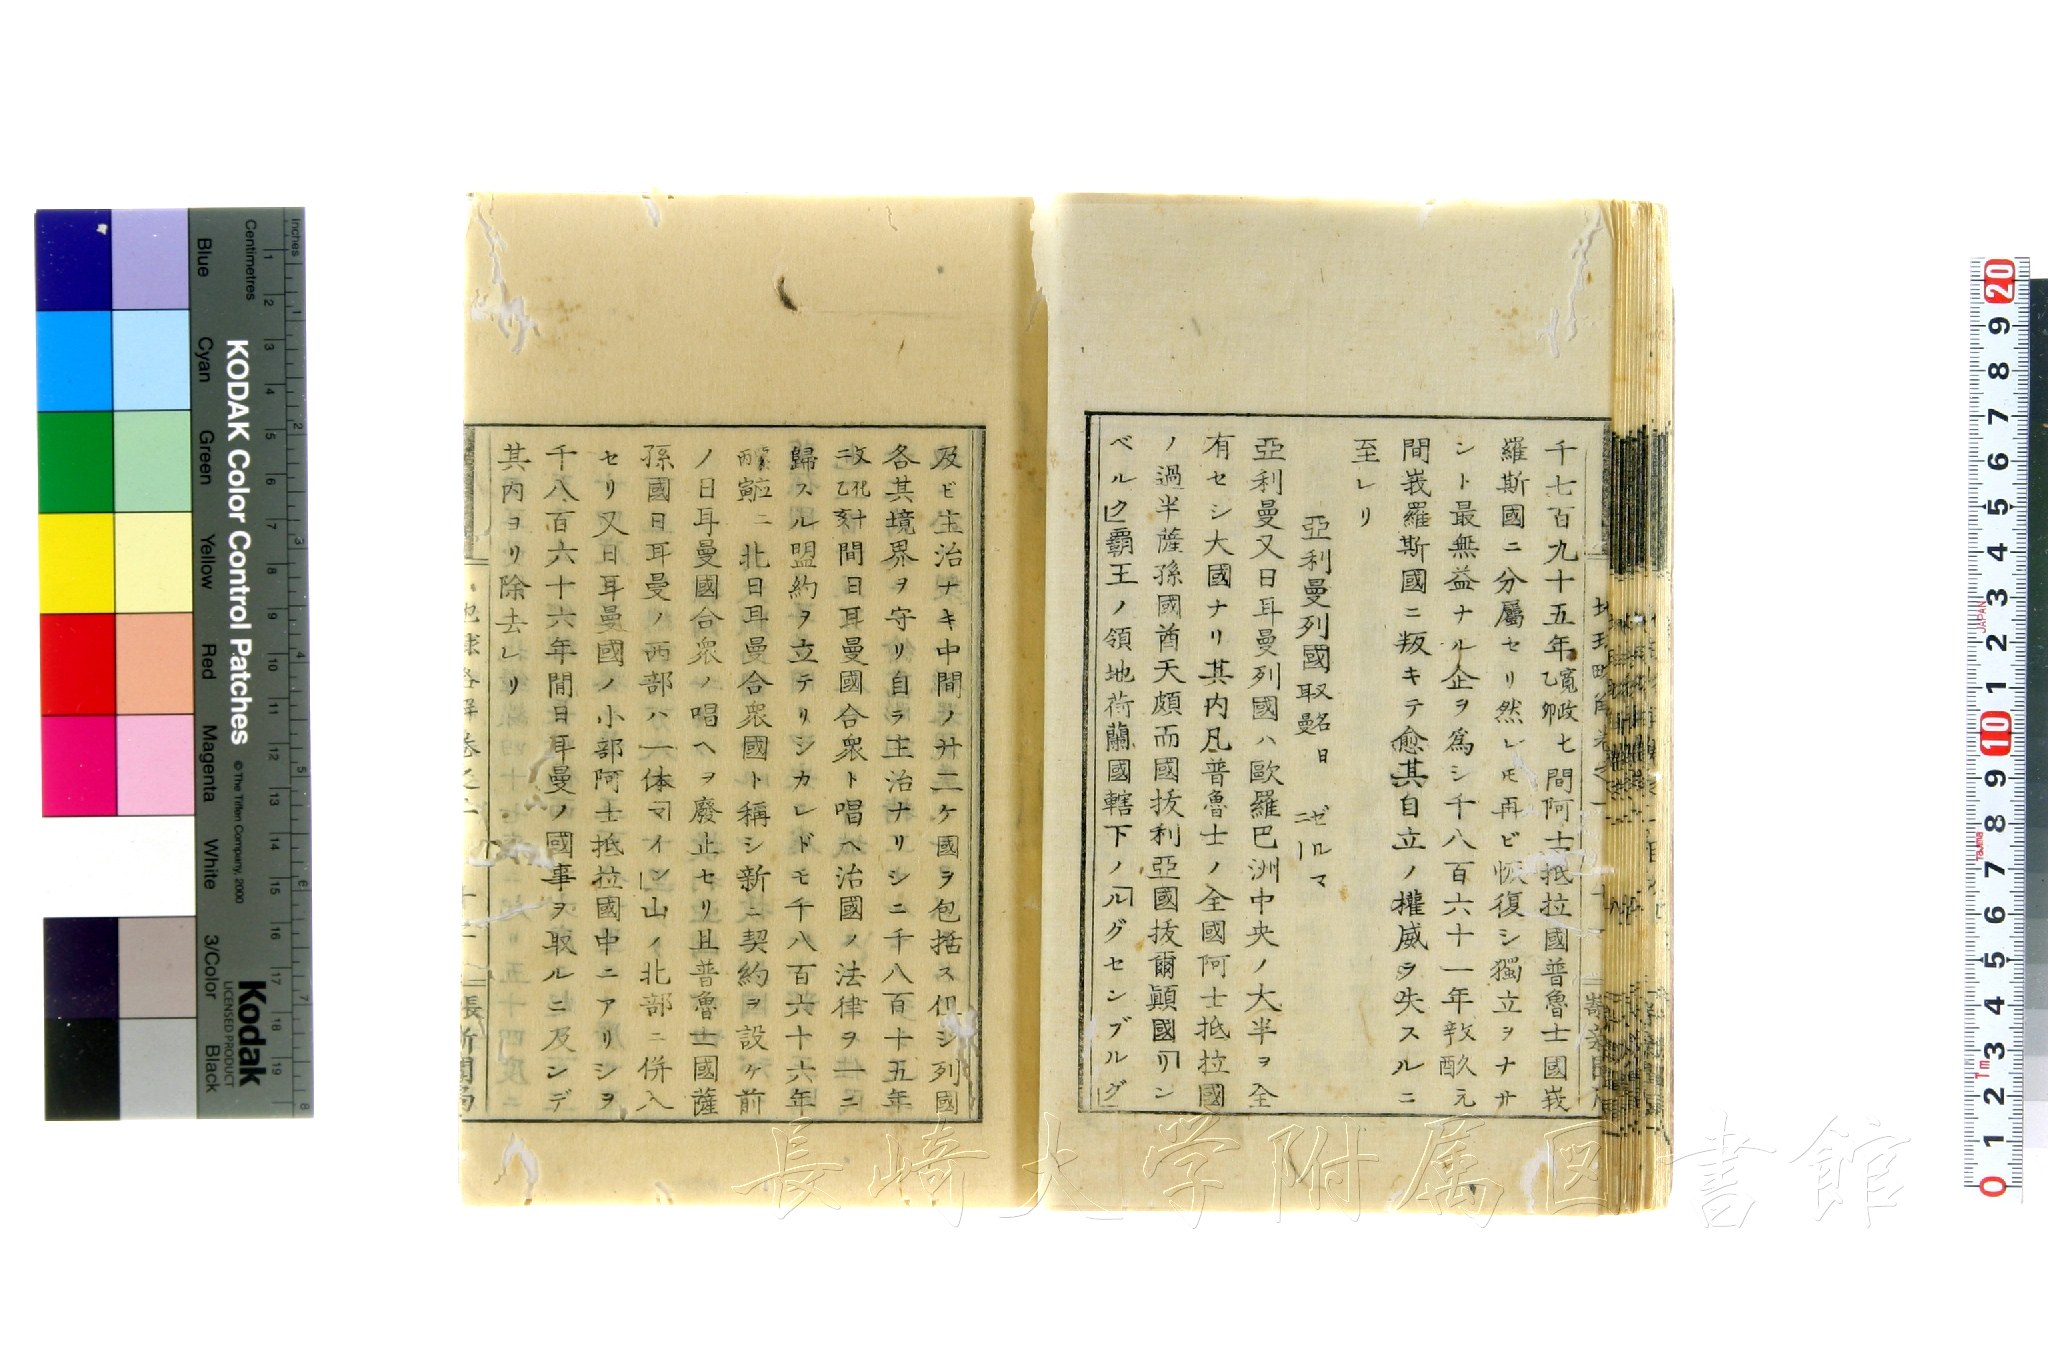 千七百九十五年寛政七乙卯間阿士抵拉國普魯士國峩
羅斯國ニ分屬セリ然レ𪜈再ビ恢復シ獨立ヲナサ
ント最無益ナル企ヲ爲シ千八百六十一年
間峩羅斯國ニ叛キテ愈其自立ノ權威ヲ失スルニ
至レリ
亞利曼列國 一名日耳曼 ゼルマニー
亞利曼又日耳曼列國ハ歐羅巴洲中央ノ大半ヲ全
有セシ大國ナリ其内凡普魯士ノ全國阿士抵拉國
ノ過半薩孫國酋天頗而國抜利亞國抜爾顛國リン
ベルク覇王ノ領地荷蘭國轄下ノルグセンブルグ
及ビ主治ナキ中間ノ廾二ケ國ヲ包括ス但シ列國
各其境界ヲ守リ自ラ主治ナリシニ千八百十五年
文化十二乙亥間日耳曼國合衆ト唱ヘ治國ノ法律ヲ一ニ
歸スル盟約ヲ立テリシカレドモ千八百六十六年
慶應二丙寅ニ北日耳曼合衆國ト稱シ新ニ契約ヲ設ケ前
ノ日耳曼國合衆ノ唱ヘヲ廢止セリ且普魯士國薩
孫國日耳曼ノ西部ハ一体マイン山ノ北部ニ併入
セリ又日耳曼國ノ小部阿士抵拉國中ニアリシヲ
千八百六十六年間日耳曼ノ國事ヲ取ルニ及ンデ
其内ヨリ除去レリ
地球略解巻之一
長崎大学附属図書館
KODAK Color Control Patches
© The Tiffen Company, 2000
Kodak
LICENSED PRODUCT
Inches
Centimetres
Blue
Cyan
Green
Yellow
Red
Magenta
White
3/Color
Black
1
2
3
4
5
6
7
8
9
10
11
12
13
14
15
16
17
18
19
1
2
3
4
5
6
7
8
20
9
8
7
6
5
4
3
2
1
10
9
8
7
6
5
4
3
2
1
0
JAPAN
Tajima
Tm